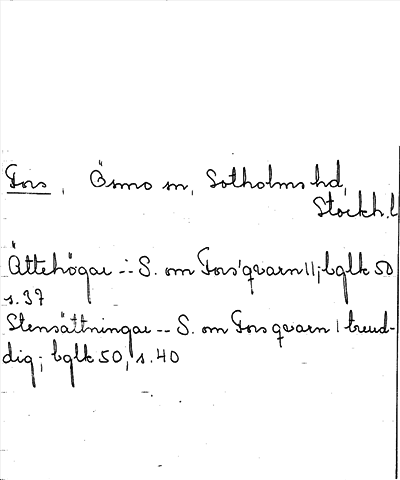 Fors, Ösmo sn, Sotholms hd,
Stockh.l
Ättehögar -:- S. om Fors'qvarn 11; bglk 50
s. 37
Stensättningar -- S. om Fors qvarn 1 treud-
dig; bglk 50, s. 40